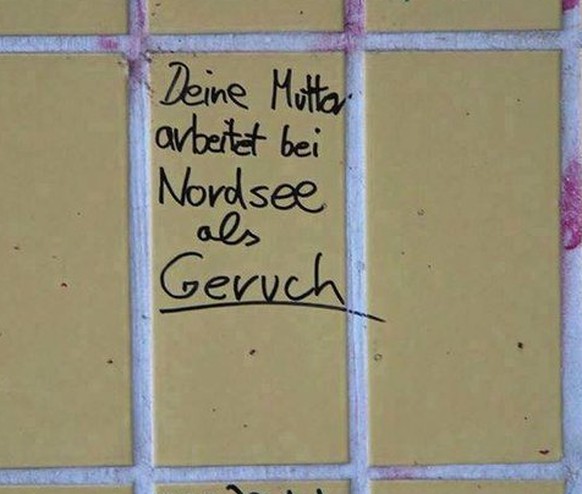 Deine Mutter
arbeitet bei
Nordsee
als
Geruch